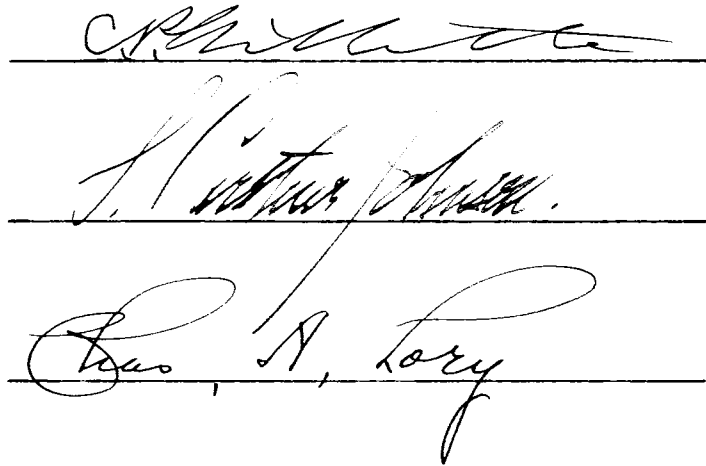 C. P. Gillette
S. Arthur Johnson.
Chas. A. Lory